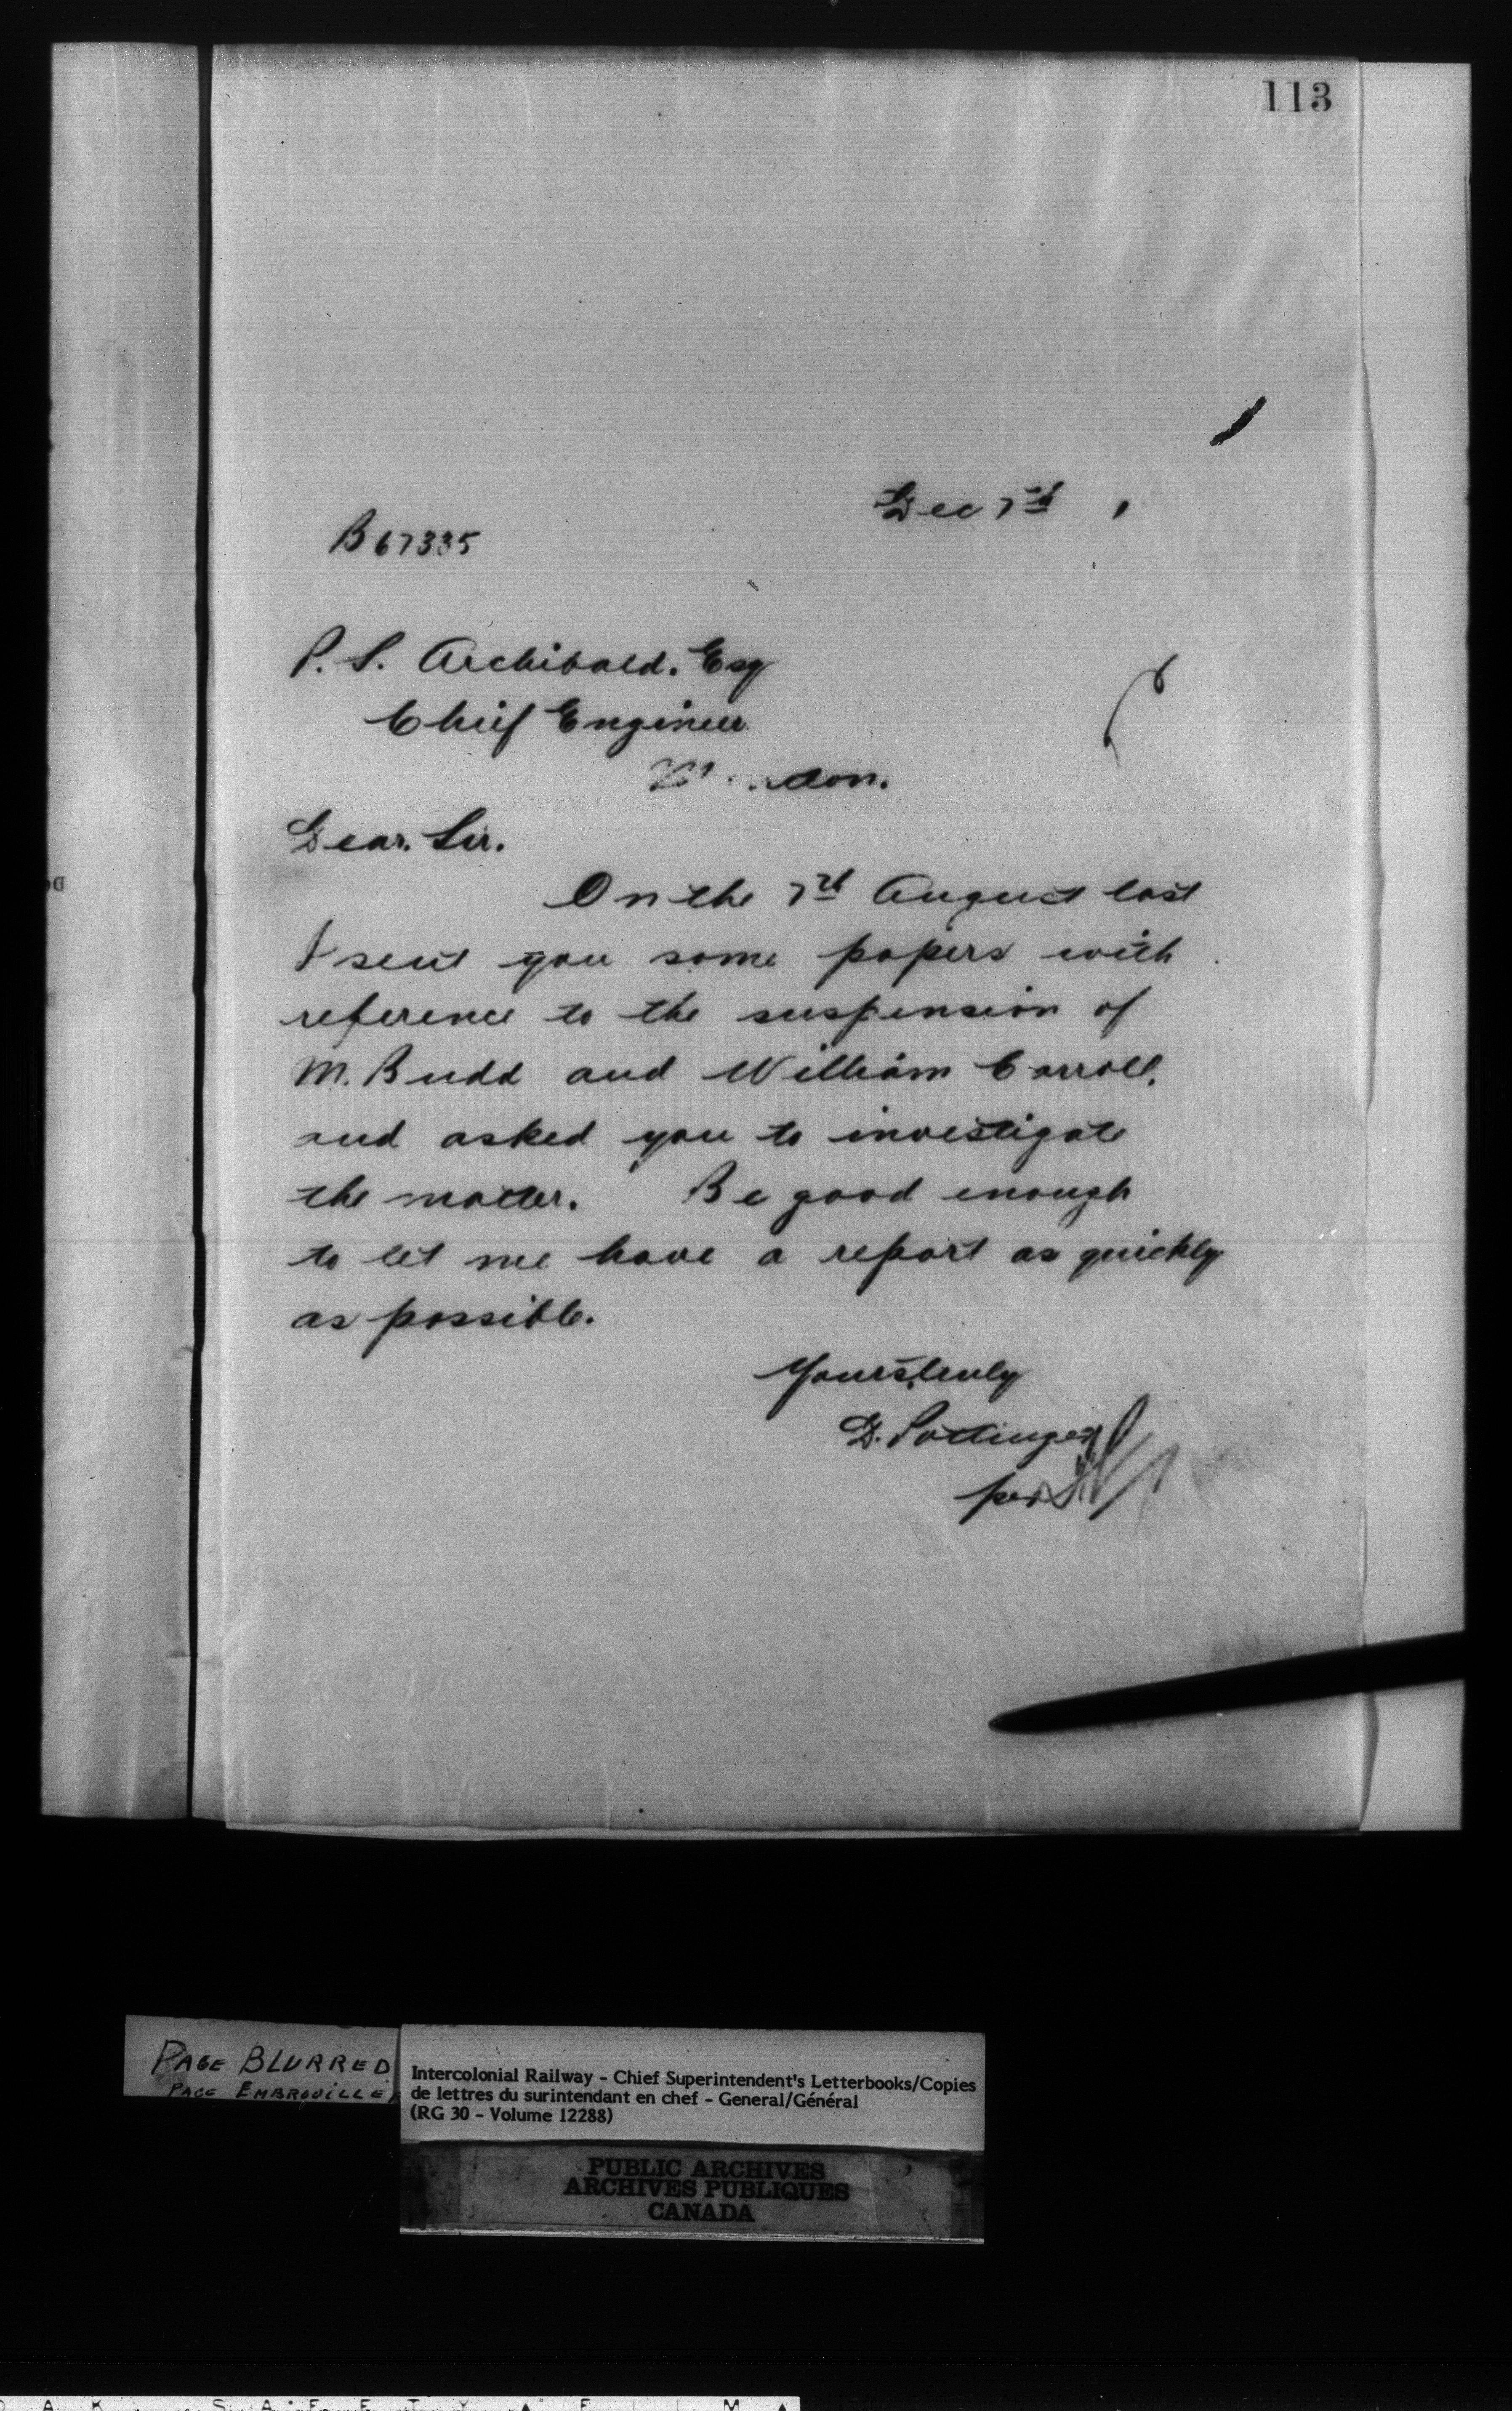 113
Dec 7th
B 67335
P. S. Archibald. Esq
Chief Engineer
Dear. Sir.
On the 7th August last
I sent you some papers with
reference to the suspension of
M. Budd and William Carroll,
and asked you to investigate
the matter. Be good enough
to let me have a report as quickly
as possible.
Yours truly
D. Pottinger
per
PAGE BLURRED
PAGE EMBROUILLE
Intercolonial Railway - Chief Superintendent's Letterbooks/Copies
de lettres du surintendant en chef - General/Général
(RG 30 - Volume 12288)
PUBLIC ARCHIVES
ARCHIVES PUBLIQUES
CANADA